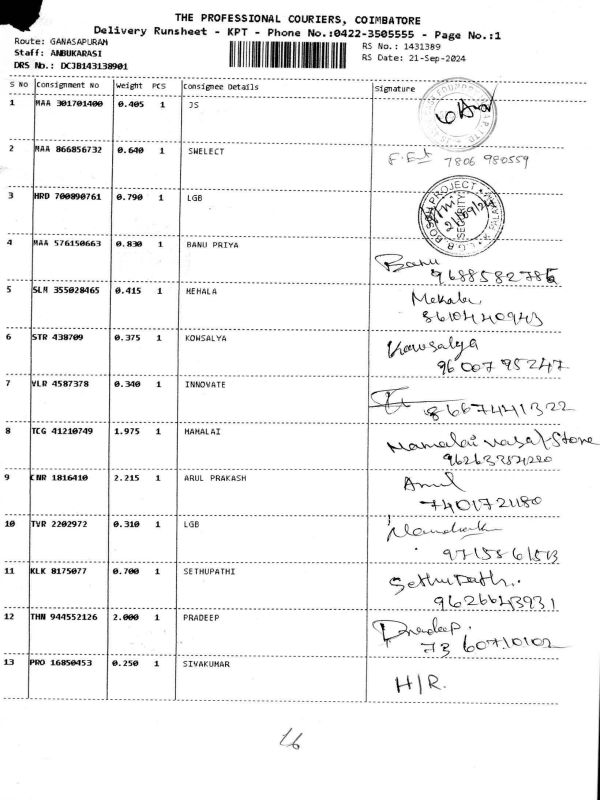 THE PROFESSIONAL COURIERS, COIMBATORE
Delivery Runsheet - KPT - Phone No.:0422-3505555 - Page No.:1
Route: GANASAPURAM
RS No.: 1431389
Staff: ANBUKARASI
RS Date: 21-Sep-2024
DRS No.: DCJB143138901
S No Consignment No Weight PCS Consignee Details Signature
1 MAA 301701400 0.405 1 JS
2 MAA 866856732 0.640 1 SWELECT 7806 980559
3 HRD 700890761 0.790 1 LGB
4 MAA 576150663 0.830 1 BANU PRIYA Banu
5 SLM 355028465 0.415 1 MEHALA Mekala
8610440943
6 STR 438709 0.375 1 KOWSALYA Kowsalya
9600795247
7 VLR 4587378 0.340 1 INNOVATE
8667441322
8 TCG 41210749 1.975 1 MAMALAI Mamalai
9 CNR 1816410 2.215 1 ARUL PRAKASH Arul
7401721180
10 TVR 2202972 0.310 1 LGB
11 KLK 8175077 0.700 1 SETHUPATHI Sethupathi
9626643931
12 THN 944552126 2.000 1 PRADEEP Pradeep.
73 60710102
13 PRO 16850453 0.250 1 SIVAKUMAR H/R.
16